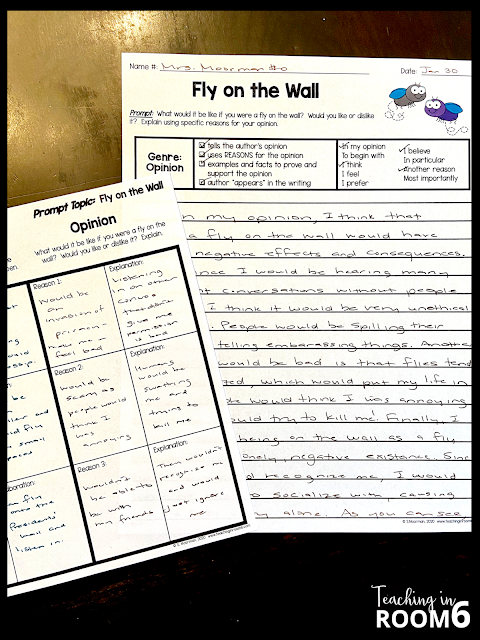 Name #: Mrs. Moorman #0 Date: Jan 30
Fly on the Wall
Prompt: What would it be like if you were a fly on the wall? Would you like or dislike
it? Explain using specific reasons for your opinion.
Genre:
Opinion
tells the author's opinion
uses REASONS for the opinion
examples and facts to prove and
support the opinion
author "appears" in the writing
In my opinion
To begin with
I think
I feel
I prefer
I believe
In particular
Another reason
Most importantly
n my opinion, I think that
a fly on the wall would have
negative effects and consequences.
nce I would be hearing many
t conversations without people
I think it would be very unethical
People would be spilling their
telling embarassing things. Another
would be bad is that flies tend
ted, which would put my life in
le would think I was annoying
ould try to kill me! Finally, I
being on the wall as a fly
onely, negative existance. Sinc
d recognize me, I would
o socialize with, causing
y alone. As you can see,
© S.Moorman, 2020 www.teachinginroom
Prompt Topic: Fly on the Wall
Opinion
What would it be like if you were a fly on the
wall? Would you like or dislike it? Explain.
Reason 1:
Would be
an
invasion of
privacy-
make me
feel bad
Explanation:
Listening
in on other
convos
that didn't
give me
permission
is bad
Reason 2:
would be
seen as
people would
think I
was
annoying
Explanation:
Humans
would be
swatting
me and
trying to
kill me
Reason 3:
wouldn't
be able to
be with
my friends
Explanation:
They wouldn't
recognize me
and would
just ignore
me
aller and
ld fly
n small
paces
boration:
am fly
onto the
Presidents'
wall and
listen in.
© S.Moorman, 2020
Teaching in
ROOM 6